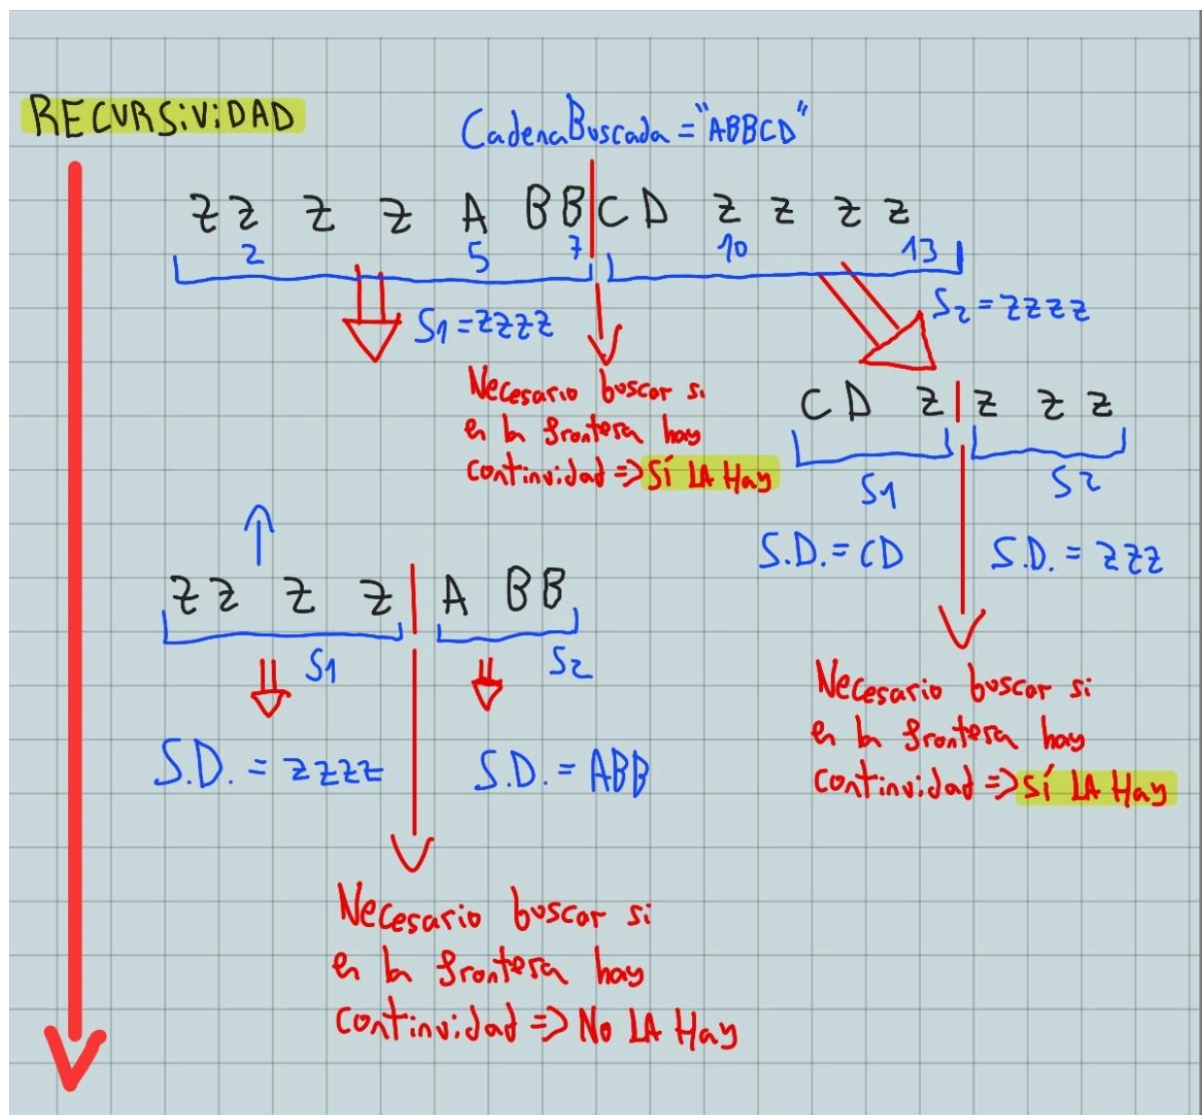 RECURSIVIDAD
CadenaBuscada = "ABBCD"
z z z z A B B C D z z z z
2 5 7 10 13
S1 = zzzz
S2 = zzzz
Necesario buscar si
en la frontera hay
continuidad => SÍ LA Hay
C D z z z z
S1 S2
S.D. = CD S.D. = zzz
z z z z A B B
S1 S2
S.D. = zzzz S.D. = ABB
Necesario buscar si
en la frontera hay
continuidad => SÍ LA Hay
Necesario buscar si
en la frontera hay
continuidad => No LA Hay